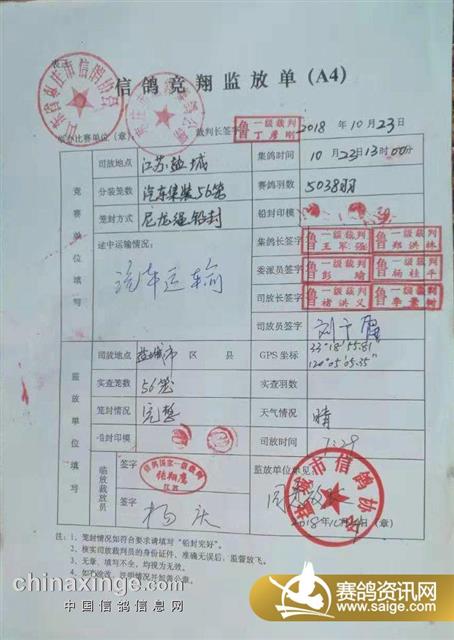 信鸽竞翔监放单(A4)
山东省枣庄市信鸽协会
主办比赛单位(章)
裁判长签字
鲁 一级裁判 丁彦刚
2018年10月23日
竞赛单位填写
司放地点 江苏盐城 集鸽时间 10月23日13时00分
分装笼数 汽车集装56笼 赛鸽羽数 5038羽
笼封方式 尼龙绳铅封 铅封印模
途中运输情况: 集鸽长签字 鲁 一级裁判 王军强 鲁 一级裁判 郑洪林
汽车运输 委派员签字 鲁 一级裁判 彭瑜 鲁 一级裁判 杨桂平
司放长签字 鲁 一级裁判 褚洪义 鲁 一级裁判 李景树
司放员签字
监放单位填写
司放地点 盐城市 区 县 GPS坐标 33°18'55.81 120°05'05.35"
实查笼数 56笼 实查羽数
笼封情况 完整 天气情况 晴
铅封印模 司放时间 7:28
临放裁放员 签字 信鸽国家一级裁判 张翔鹰 江苏 监放单位意见:
签字 杨庆 同意放飞
盐城市信鸽协会
2018年10月24日(章)
注:1、笼封情况如符合要求请填写“铅封完好”。
2、核实司放裁判员的身份证件,准确无误后,监督放飞。
3、无章、填写不全,均视为无效。
4、如有涂改,注明情况并加盖公章。
chinaxinge.com
中国信鸽信息网
赛鸽资讯网
www.saige.com